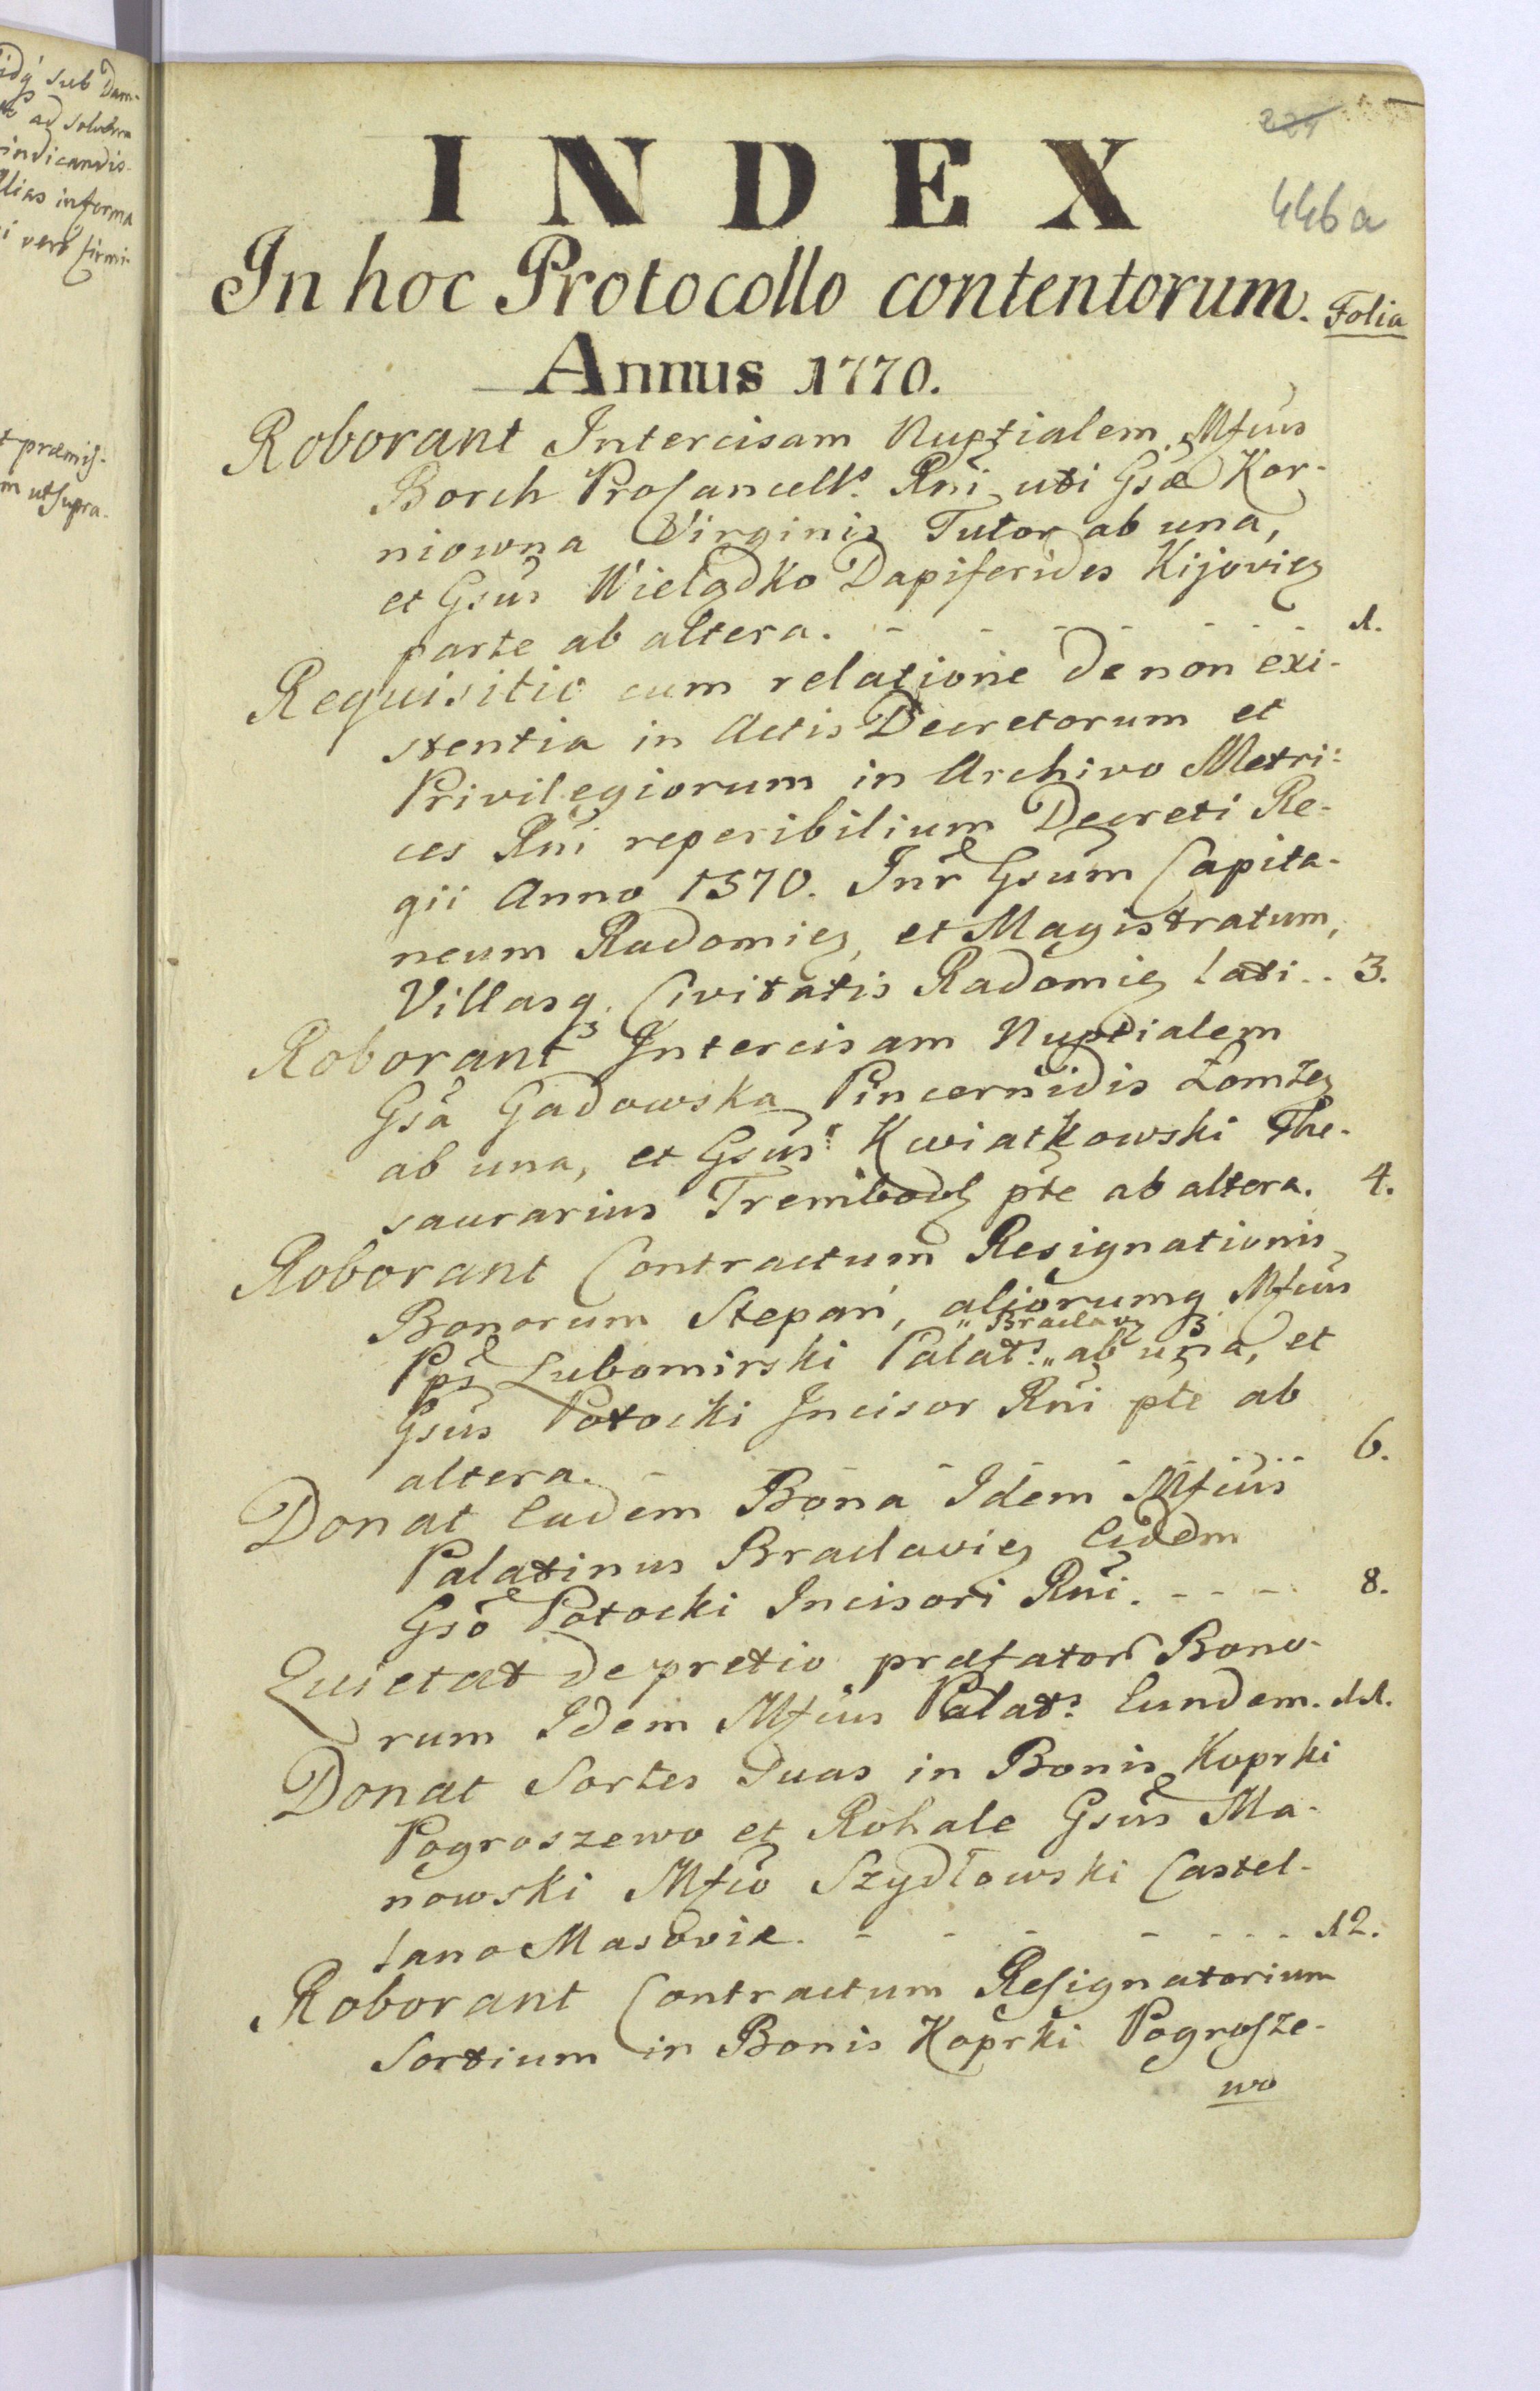 idq sub Dam-
ad solutem
indicandis
alias in forma
i vero firmi-
t præmiss-
m ut supra.
221
446a
INDEX
In hoc Protocollo contentorum. Folia
Annus 1770.
Roborant Intercisam Nuptialem Mfcus
Borch ProCancells Rni uti Gsæ Kor-
niowna Virginis Tutor ab una,
et Gsus Wielądko Dapiferides Kijovien
parte ab altera. - - - - - - - - 1.
Requisitio cum relatione de non exi-
stentia in Actis Decretorum et
Privilegiorum in Archivo Metri-
ces Rni reperibilium Decreti Re-
gii Anno 1570. Inr Gsum Capita-
neum Radomien, et Magistratum,
Villasq Civitatis Radomien lati .. 3.
Roborant Intercisam Nuptialem
Gsa Gadowska Pincernidis Łomżen
ab una, et Gsus Kwiatkowski The-
saurarius Trembowl pte ab altera. 4.
Roborant Contractum Resignationis
Bonorum Stepań, aliorumq Mfcus
Pps Lubomirski Palats „Braclav„ ab una, et
Gsus Potocki Incisor Rni pte ab
altera. - - - - - - - 6.
Donat Eadem Bona Idem Mfcus
Palatinus Braclavien Eidem
Gso Potocki Incisori Rni. - - - 8.
Quietat de pretio præfator Bono-
rum Idem Mfcus Palats Eundem. 11.
Donat Sortes Suas in Bonis Koprki
Pogroszewo et Rohale Gsus Ma-
nowski Mfco Szydłowski Castel-
lano Masoviæ. - - - - - - - 12.
Roborant Contractum Resignatorium
Sortium in Bonis Koprki Pogrosze-
wo